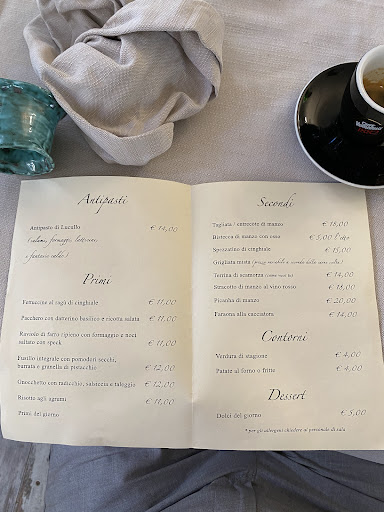 Antipasti
Antipasto di Lucullo € 14,00
(salumi, formaggi, latticini,
e fantasie calde)
Primi
Fettuccine al ragù di cinghiale € 11,00
Pacchero con datterino basilico e ricotta salata € 11,00
Raviolo di farro ripieno con formaggio e noci
saltato con speck € 11,00
Fusillo integrale con pomodori secchi,
burrata e granella di pistacchio € 12,00
Gnocchetto con radicchio, salsiccia e taleggio € 12,00
Risotto agli agrumi € 11,00
Primi del giorno
Secondi
Tagliata / entrecote di manzo € 18,00
Bistecca di manzo con osso € 5,00 / etto
Spezzatino di cinghiale € 15,00
Grigliata mista
Terrina di scamorza € 14,00
Stracotto di manzo al vino rosso € 18,00
Picanha di manzo € 20,00
Faraona alla cacciatora € 14,00
Contorni
Verdura di stagione € 4,00
Patate al forno o fritte € 4,00
Dessert
Dolci del giorno € 5,00
* per gli allergeni chiedere al personale di sala